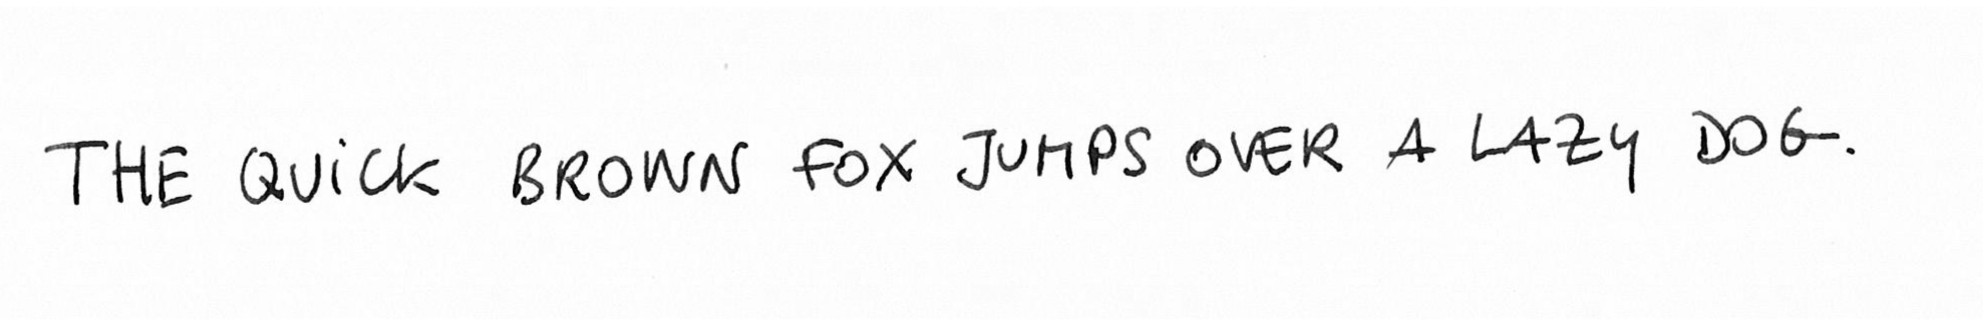 THE QUiCK BROWN FOX JUMPS OVER A LAZY DOG.